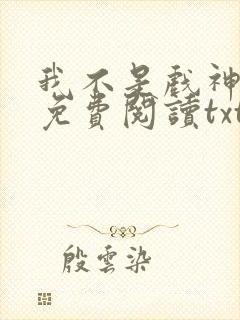 我不是戲神
免費閱讀txt
殷雲染